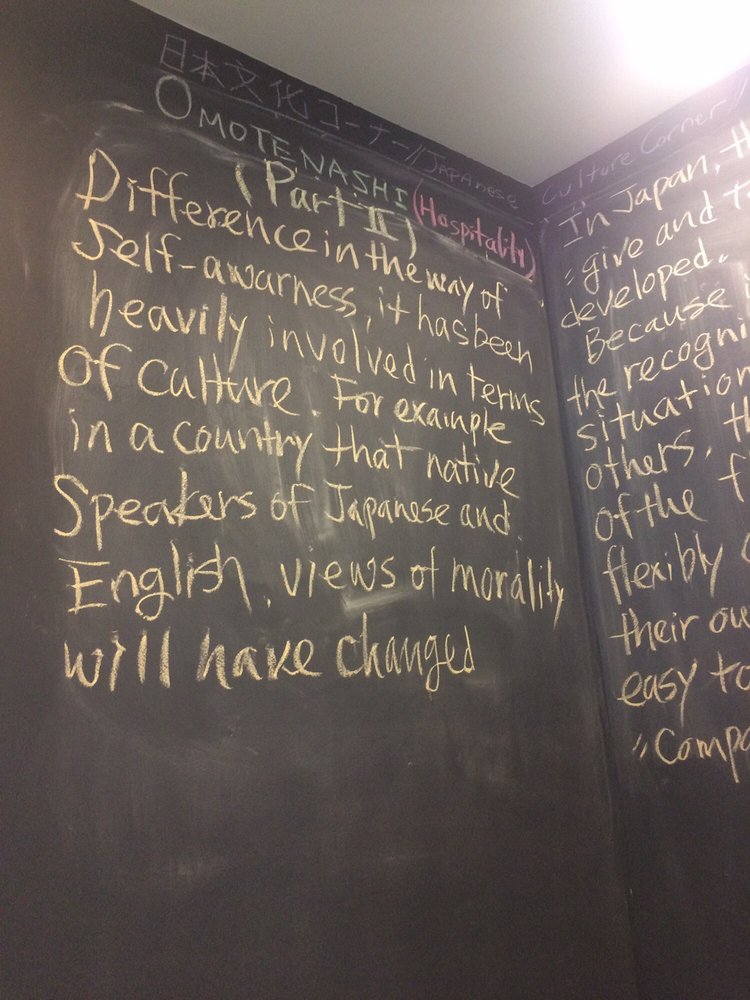 日本文化コーナー//Japanese Culture Corner//
OMOTENASHI (Hospitality)
(Part II)
Difference in the way of
Self-awarness, it has been
heavily involved in terms
of culture. For example
in a country that native
Speakers of Japanese and
English, views of morality
will have changed
In Japan, th
"give and t
developed.
Because i
the recogni
situation
others, th
of the f
flexibly
their ou
easy to
"Compa